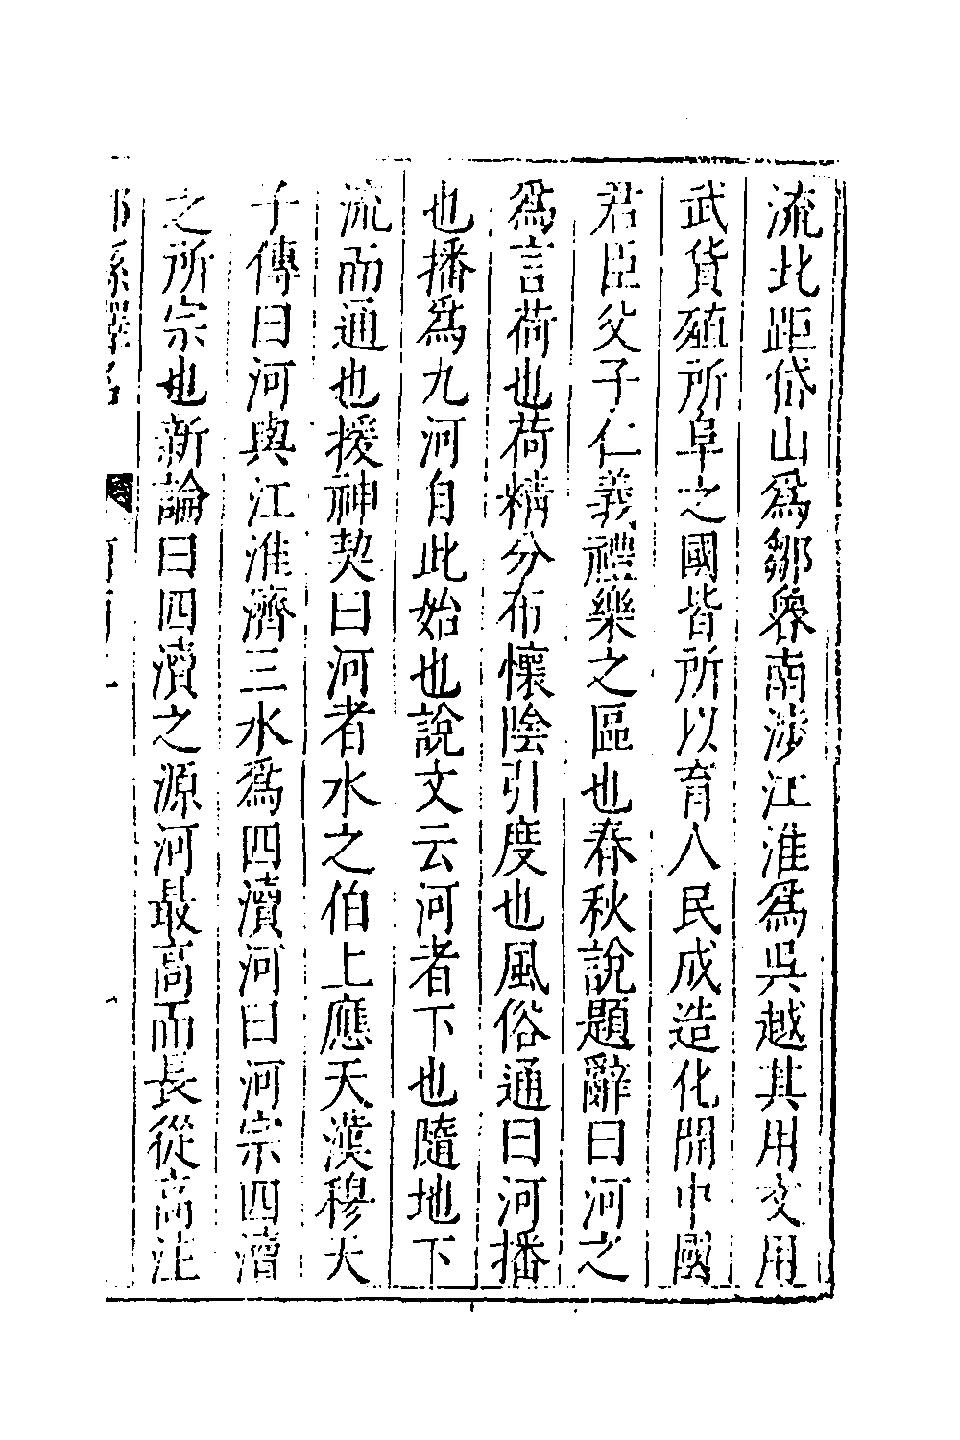 流北距岱山爲鄒魯南涉江淮爲吳越其用文用
武貨殖所阜之國皆所以育人民成造化開中國
君臣父子仁義禮樂之區也春秋說題辭曰河之
爲言荷也荷精分布懷陰引度也風俗通曰河播
也播爲九河自此始也說文云河者下也隨地下
流而通也援神契曰河者水之伯上應天漢穆天
子傳曰河與江淮濟三水爲四瀆河曰河宗四瀆
之所宗也新論曰四瀆之源河最高而長從高注
郡縣釋名